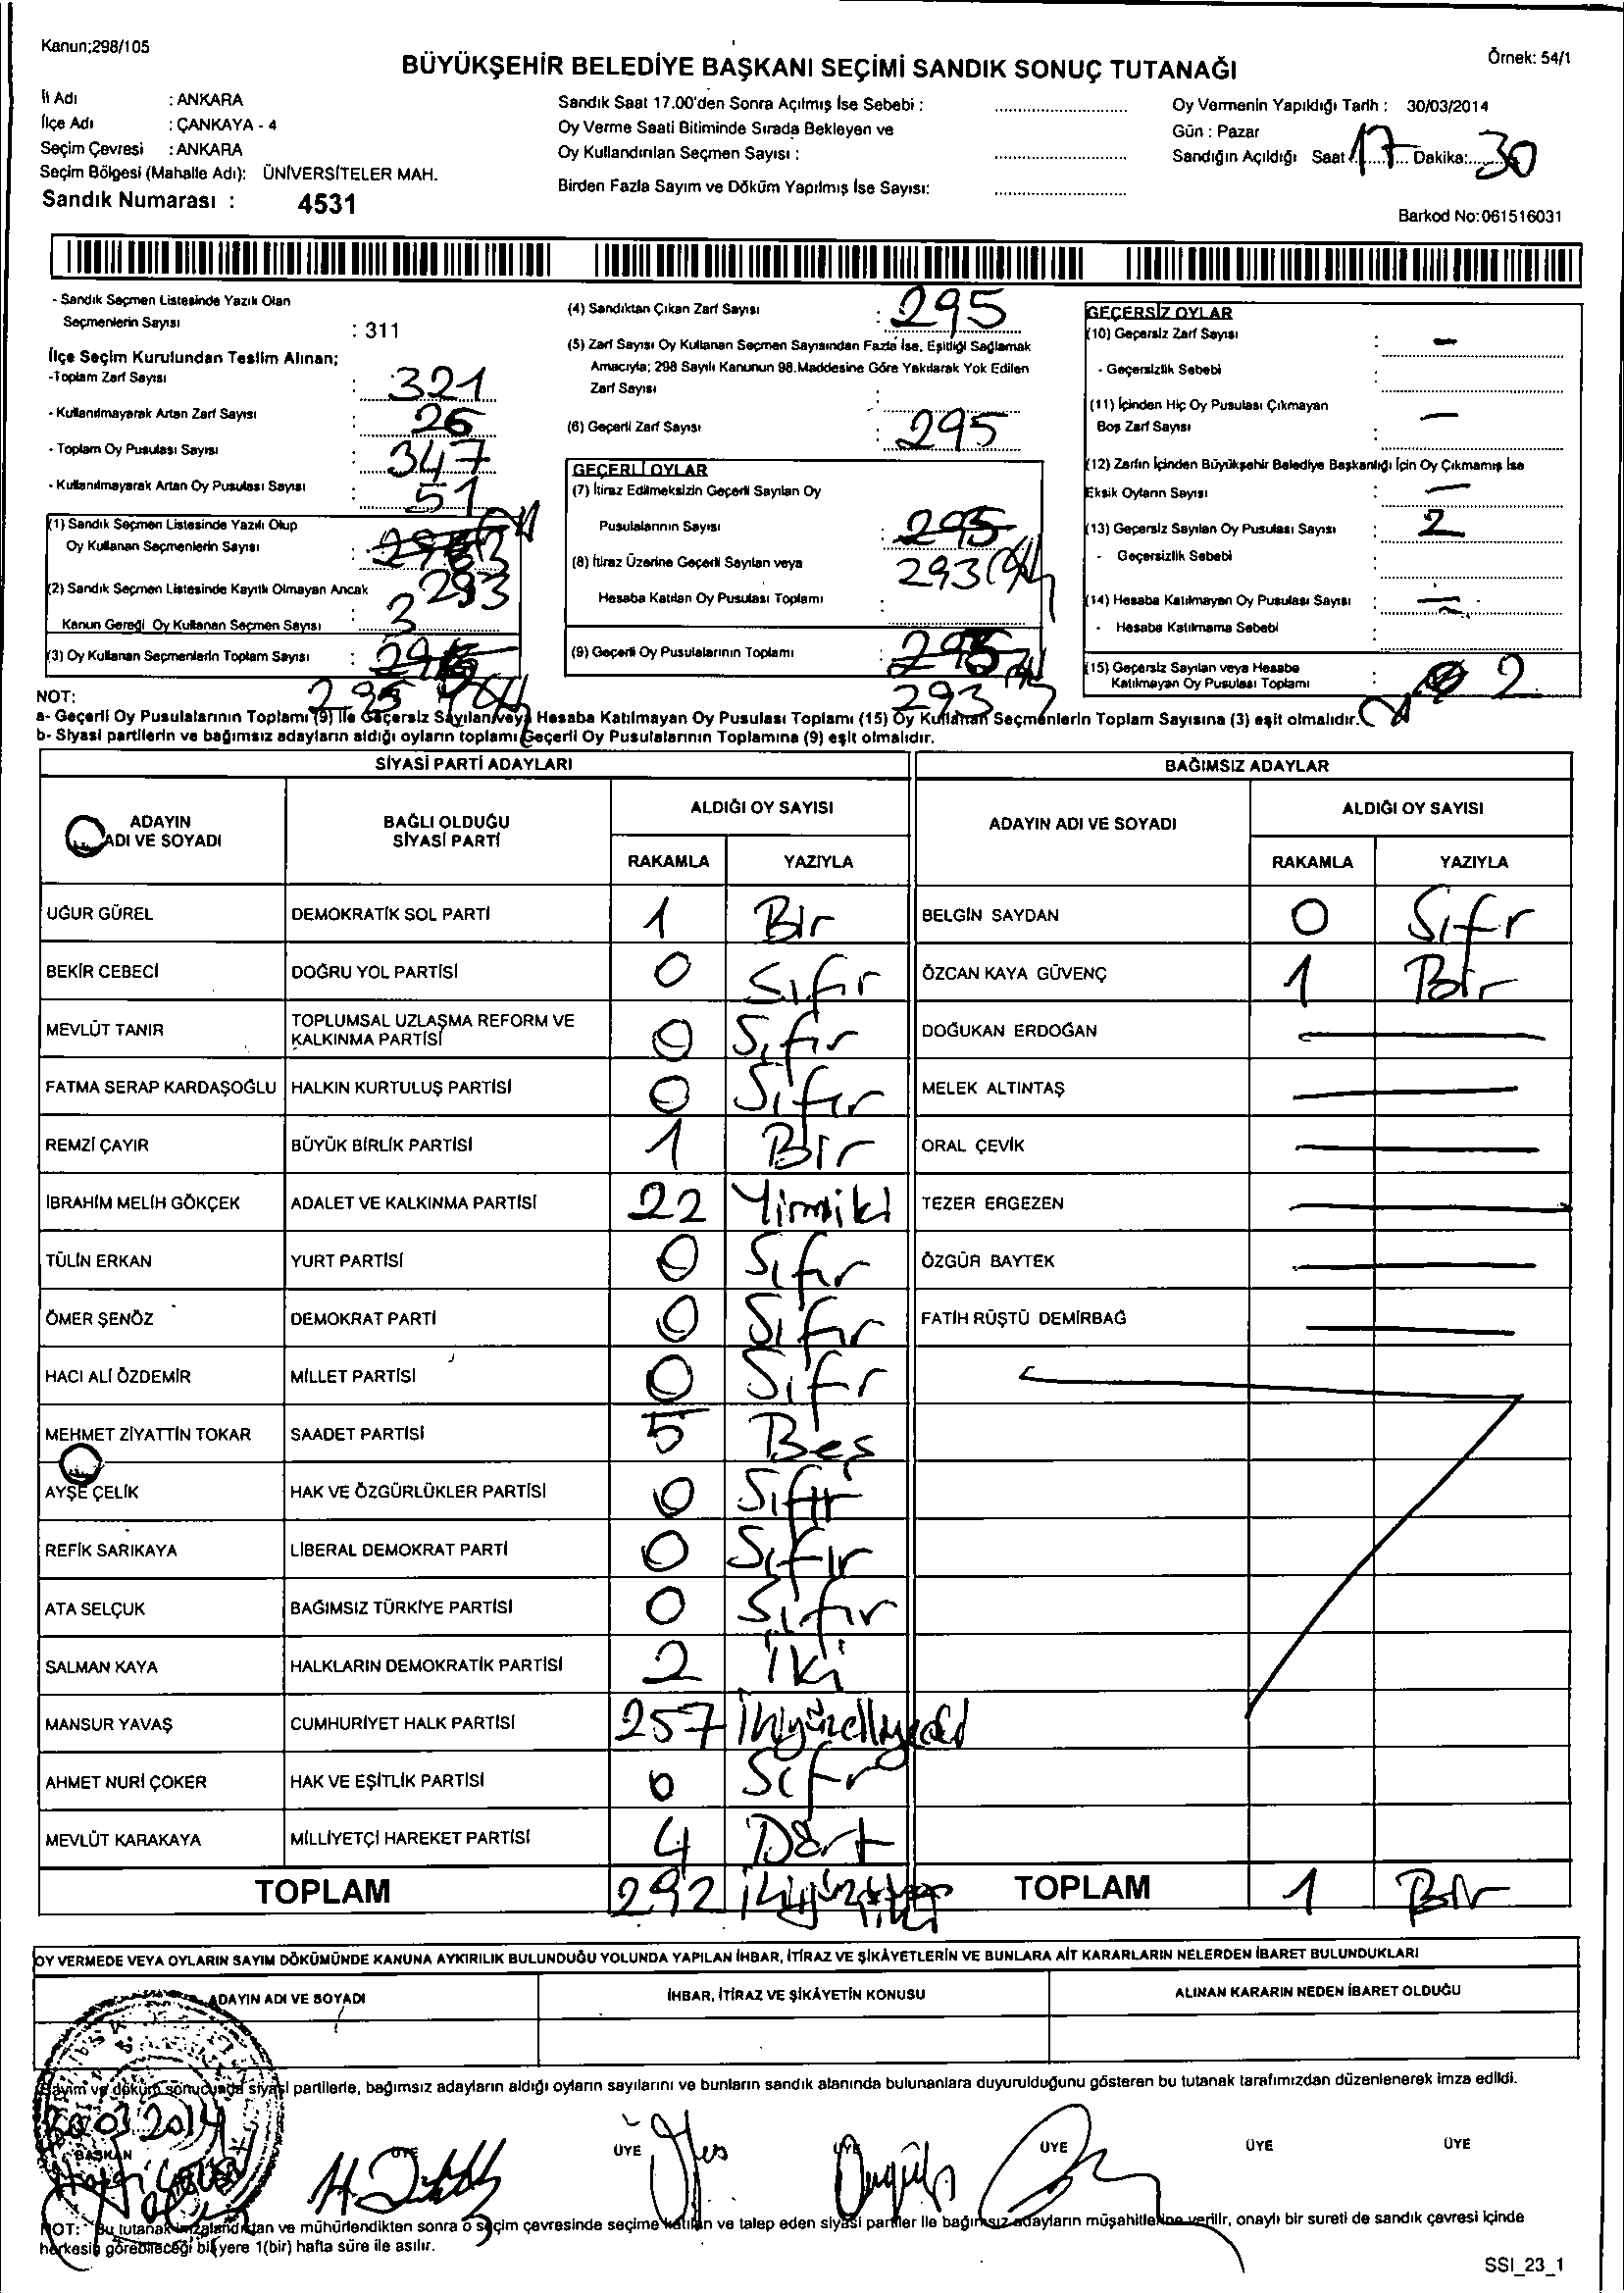 Kanun;298/105
BÜYÜKŞEHİR BELEDİYE BAŞKANI SEÇİMİ SANDIK SONUÇ TUTANAĞI
Örnek: 54/1
İl Adı : ANKARA
İlçe Adı : ÇANKAYA - 4
Seçim Çevresi : ANKARA
Seçim Bölgesi (Mahalle Adı): ÜNİVERSİTELER MAH.
Sandık Numarası : 4531
Sandık Saat 17.00'den Sonra Açılmış İse Sebebi :
Oy Verme Saati Bitiminde Sırada Bekleyen ve
Oy Kullandırılan Seçmen Sayısı :
Birden Fazla Sayım ve Döküm Yapılmış İse Sayısı:
Oy Vermenin Yapıldığı Tarih : 30/03/2014
Gün : Pazar
Sandığın Açıldığı Saat: 17 Dakika: 30
Barkod No:061516031
- Sandık Seçmen Listesinde Yazılı Olan
Seçmenlerin Sayısı : 311
İlçe Seçim Kurulundan Teslim Alınan;
-Toplam Zarf Sayısı : 321
- Kullanılmayarak Artan Zarf Sayısı : 26
- Toplam Oy Pusulası Sayısı : 347
- Kullanılmayarak Artan Oy Pusulası Sayısı : 51
(1) Sandık Seçmen Listesinde Yazılı Olup
Oy Kullanan Seçmenlerin Sayısı :
293
(2) Sandık Seçmen Listesinde Kayıtlı Olmayan Ancak
Kanun Gereği Oy Kullanan Seçmen Sayısı : 2
(3) Oy Kullanan Seçmenlerin Toplam Sayısı :
295
(4) Sandıktan Çıkan Zarf Sayısı : 295
(5) Zarf Sayısı Oy Kullanan Seçmen Sayısından Fazla İse, Eşitliği Sağlamak
Amacıyla; 298 Sayılı Kanunun 98.Maddesine Göre Yakılarak Yok Edilen
Zarf Sayısı :
(6) Geçerli Zarf Sayısı : 295
GEÇERLİ OYLAR
(7) İtiraz Edilmeksizin Geçerli Sayılan Oy
Pusulalarının Sayısı : 295
293
(8) İtiraz Üzerine Geçerli Sayılan veya
Hesaba Katılan Oy Pusulası Toplamı :
(9) Geçerli Oy Pusulalarının Toplamı : 295
293
GEÇERSİZ OYLAR
(10) Geçersiz Zarf Sayısı : -
- Geçersizlik Sebebi :
(11) İçinden Hiç Oy Pusulası Çıkmayan
Boş Zarf Sayısı : -
(12) Zarfın İçinden Büyükşehir Belediye Başkanlığı İçin Oy Çıkmamış İse
Eksik Oyların Sayısı : -
(13) Geçersiz Sayılan Oy Pusulası Sayısı : 2
- Geçersizlik Sebebi :
(14) Hesaba Katılmayan Oy Pusulası Sayısı : -
- Hesaba Katılmama Sebebi :
(15) Geçersiz Sayılan veya Hesaba
Katılmayan Oy Pusulası Toplamı : 2
NOT:
a- Geçerli Oy Pusulalarının Toplamı (9) İle Geçersiz Sayılan veya Hesaba Katılmayan Oy Pusulası Toplamı (15) Oy Kullanan Seçmenlerin Toplam Sayısına (3) eşit olmalıdır.
b- Siyasi partilerin ve bağımsız adayların aldığı oyların toplamı Geçerli Oy Pusulalarının Toplamına (9) eşit olmalıdır.
SİYASİ PARTİ ADAYLARI
BAĞIMSIZ ADAYLAR
ADAYIN ADI VE SOYADI
BAĞLI OLDUĞU SİYASİ PARTİ
ALDIĞI OY SAYISI
RAKAMLA YAZIYLA
ADAYIN ADI VE SOYADI
ALDIĞI OY SAYISI
RAKAMLA YAZIYLA
UĞUR GÜREL DEMOKRATİK SOL PARTİ 1 Bir BELGİN SAYDAN 0 Sıfr
BEKİR CEBECİ DOĞRU YOL PARTİSİ 0 Sıfır ÖZCAN KAYA GÜVENÇ 1 Bir
MEVLÜT TANIR TOPLUMSAL UZLAŞMA REFORM VE KALKINMA PARTİSİ 0 Sıfır DOĞUKAN ERDOĞAN
FATMA SERAP KARDAŞOĞLU HALKIN KURTULUŞ PARTİSİ 0 Sıfır MELEK ALTINTAŞ
REMZİ ÇAYIR BÜYÜK BİRLİK PARTİSİ 1 Bir ORAL ÇEVİK
İBRAHİM MELİH GÖKÇEK ADALET VE KALKINMA PARTİSİ 22 Yirmiiki TEZER ERGEZEN
TÜLİN ERKAN YURT PARTİSİ 0 Sıfır ÖZGÜR BAYTEK
ÖMER ŞENÖZ DEMOKRAT PARTİ 0 Sıfır FATİH RÜŞTÜ DEMİRBAĞ
HACI ALİ ÖZDEMİR MİLLET PARTİSİ 0 Sıfr
MEHMET ZİYATTİN TOKAR SAADET PARTİSİ 5 Beş
AYŞE ÇELİK HAK VE ÖZGÜRLÜKLER PARTİSİ 0 Sıfır
REFİK SARIKAYA LİBERAL DEMOKRAT PARTİ 0 Sıfır
ATA SELÇUK BAĞIMSIZ TÜRKİYE PARTİSİ 0 Sıfır
SALMAN KAYA HALKLARIN DEMOKRATİK PARTİSİ 2 İki
MANSUR YAVAŞ CUMHURİYET HALK PARTİSİ 257 İkiyüzelliyedi
AHMET NURİ ÇOKER HAK VE EŞİTLİK PARTİSİ 0 Sıfr
MEVLÜT KARAKAYA MİLLİYETÇİ HAREKET PARTİSİ 4 Dört
TOPLAM 292 TOPLAM 1 Bir
OY VERMEDE VEYA OYLARIN SAYIM DÖKÜMÜNDE KANUNA AYKIRILIK BULUNDUĞU YOLUNDA YAPILAN İHBAR, İTİRAZ VE ŞİKÂYETLERİN VE BUNLARA AİT KARARLARIN NELERDEN İBARET BULUNDUKLARI
ADAYIN ADI VE SOYADI İHBAR, İTİRAZ VE ŞİKÂYETİN KONUSU ALINAN KARARIN NEDEN İBARET OLDUĞU
Sayım ve döküm sonucunda siyasi partilerle, bağımsız adayların aldığı oyların sayılarını ve bunların sandık alanında bulunanlara duyurulduğunu gösteren bu tutanak tarafımızdan düzenlenerek imza edildi.
30.03.2014
BAŞKAN ÜYE ÜYE ÜYE ÜYE ÜYE ÜYE
NOT: Bu tutanak imzalandıktan ve mühürlendikten sonra o seçim çevresinde seçime katılan ve talep eden siyasi partiler ile bağımsız adayların müşahitlerine verilir, onaylı bir sureti de sandık çevresi içinde
herkesin görebileceği bir yere 1(bir) hafta süre ile asılır.
SSI_23_1